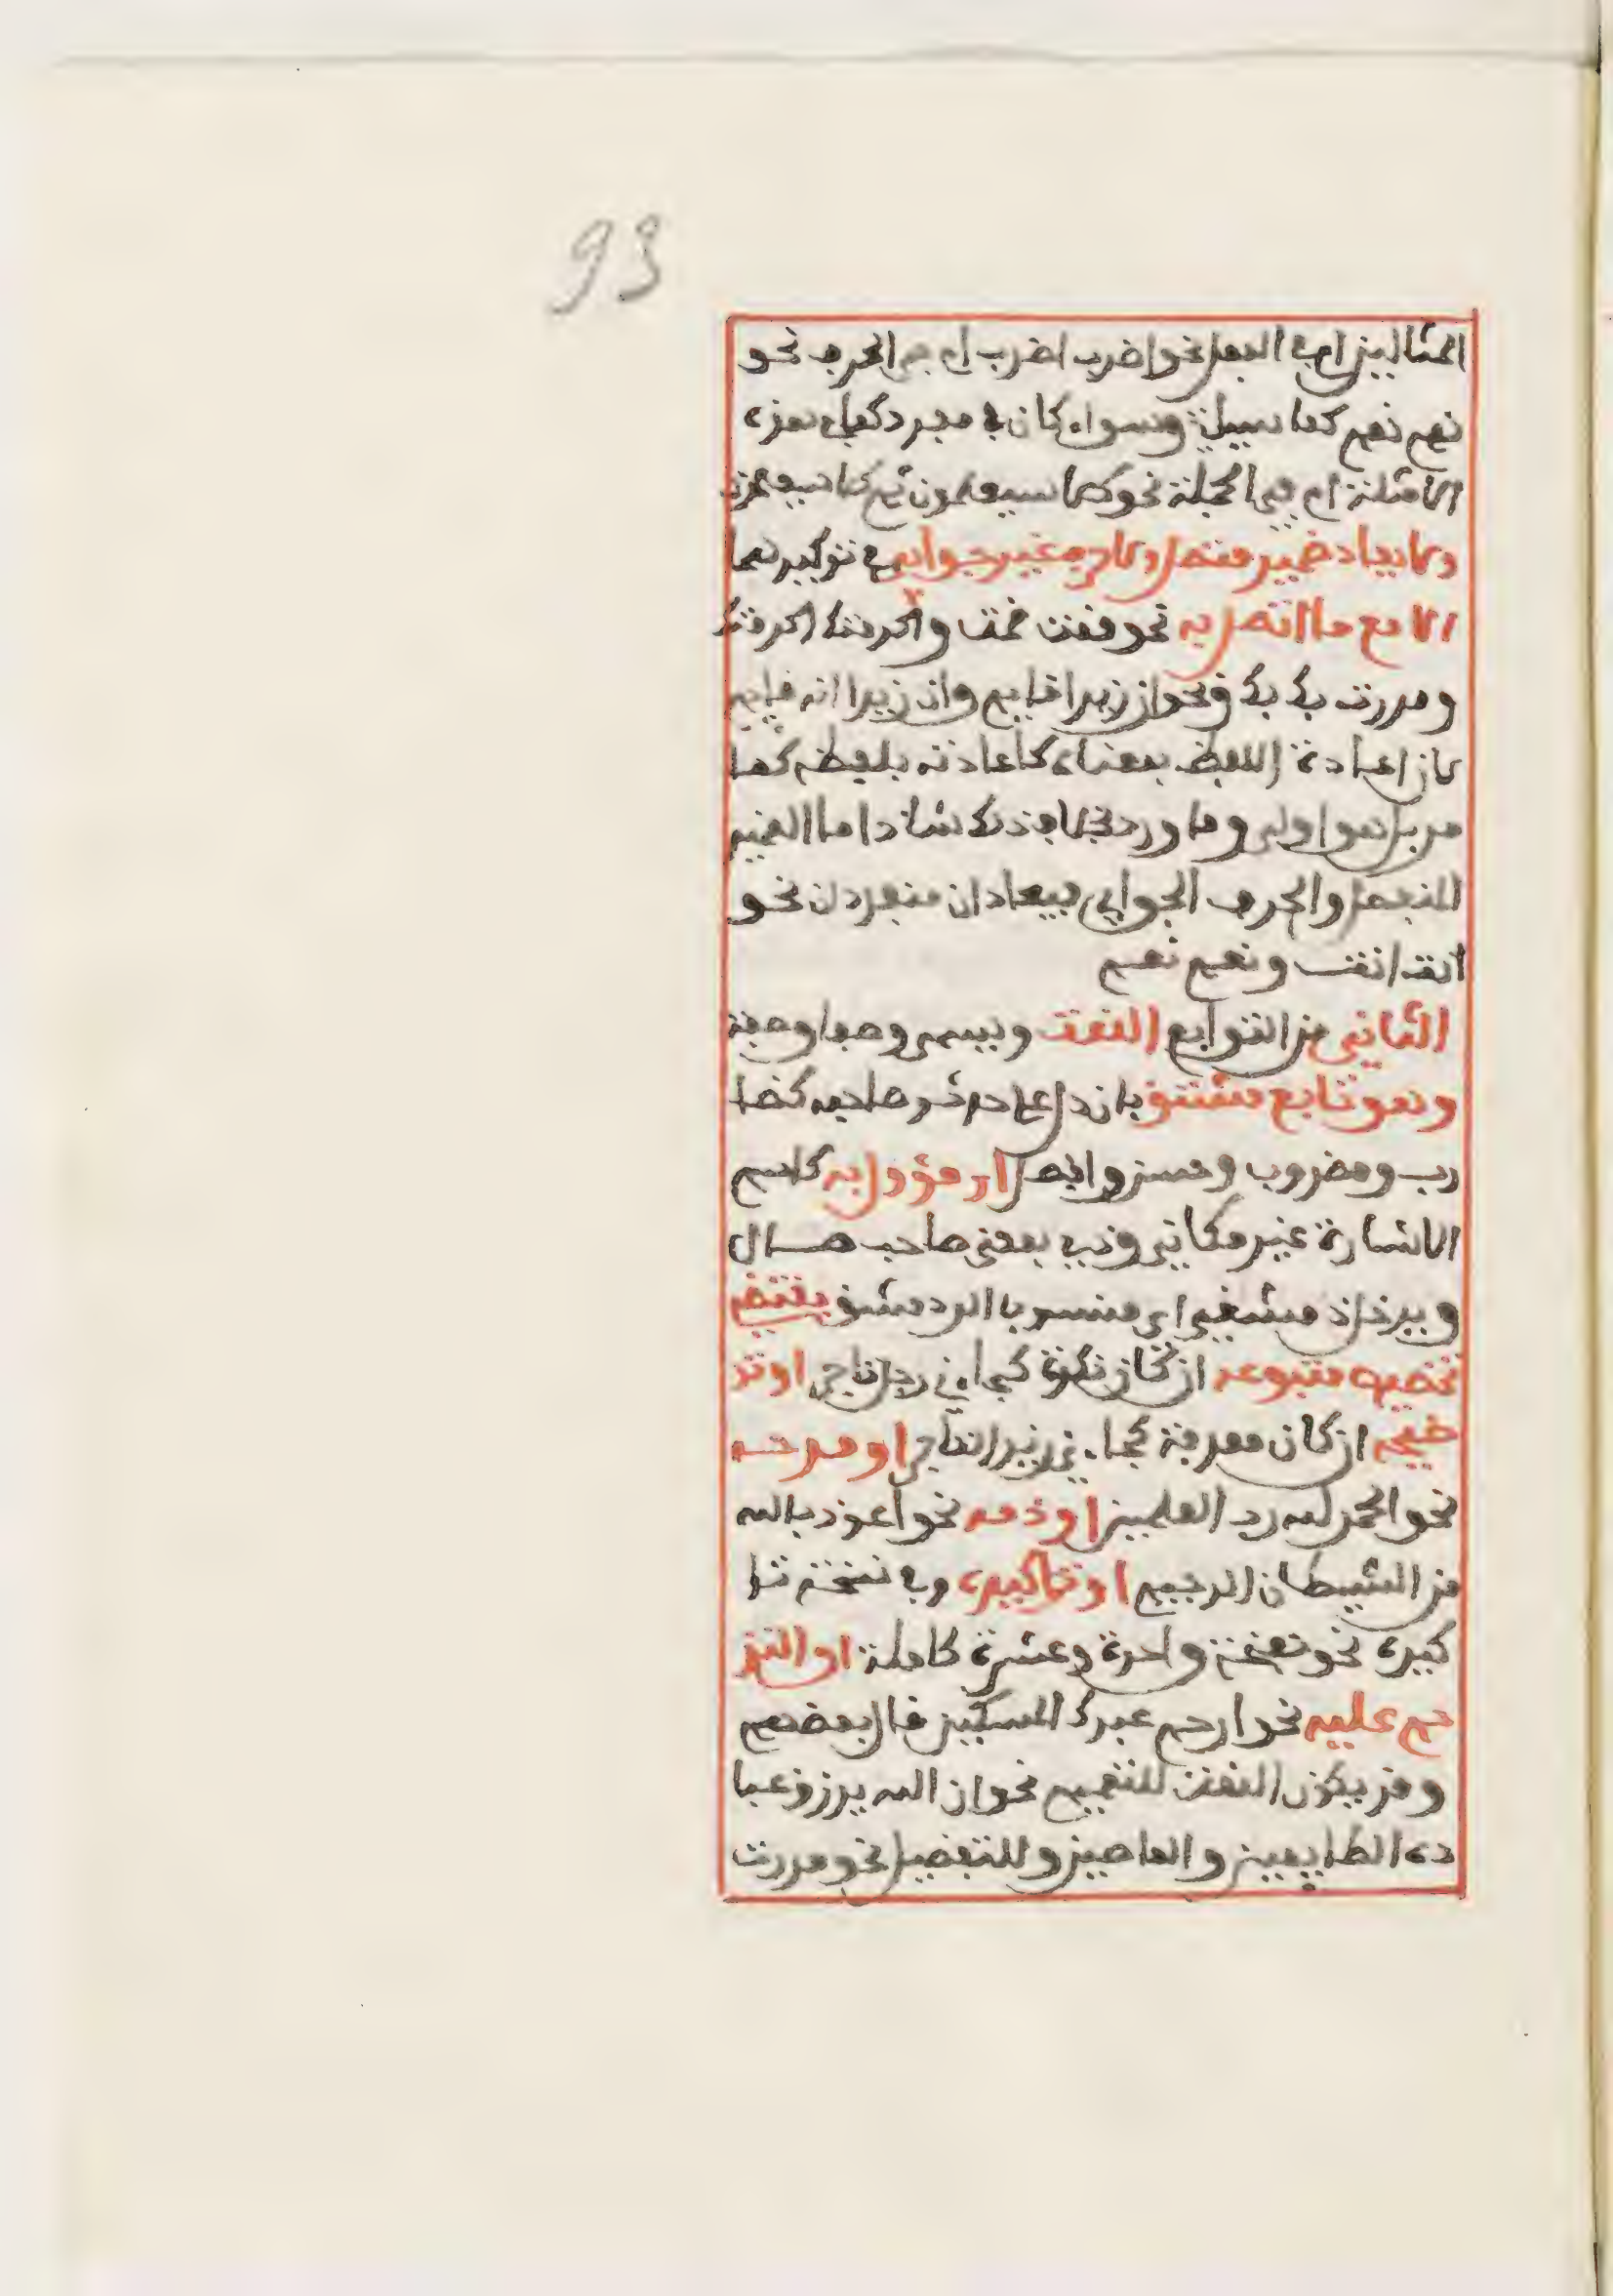 93
المثالين ام في الفعل نحو اضرب اضرب ام في الحرف نحو
نعم نعم كما سيبيل وسواء كان في مفرد كما في هذه
الامثلة ام في الجملة نحو كلا سيعلمون ثم كلا سيعلمون
ولا يعاد ضمير متصل ولا حرف غير جوابي في توكيدهما
الا مع ما اتصل به نحو قمت قمت واكرمتك اكرمتك
ومررت بك بك ونحو ان زيدا قايم وان زيدا انه قايم
لان اعادة اللفظ بمعناه كاعادته بلفظه كما
مر بل هو اولى وما ورد بخلاف ذلك شاذ اما الضمير
المنفصل والحرف الجوابي فيعادان منفردان نحو
انت انت ونعم نعم
الثاني من التوابع النعت ويسمى وصفا وصفة
وهو تابع مشتق بان دل على حدث وصاحبه كضا
رب ومضروب وحسن وافضل او مؤول به كاسم
الاشارة غير مكاني وذي بمعنى صاحب مال
وبرجل دمشقي اي منسوب الى دمشق يقتضي
تخصيص متبوعه ان كان نكرة كجاءني رجل تاجر او تو
ضيحه ان كان معرفة كجاءني زيد التاجر او مدحه
نحو الحمد لله رب العلمين او ذمه نحو اعوذ بالله
من الشيطان الرجيم او تاكيده وفي نسخة تا
كيده نحو نفخة واحدة وعشرة كاملة او التر
حم عليه نحو ارحم عبدك المسكين قال بعضهم
وقد يكون النعت للتعميم نحو ان الله يرزق عبا
ده الطايعين والعاصين وللتفصيل نحو مررت